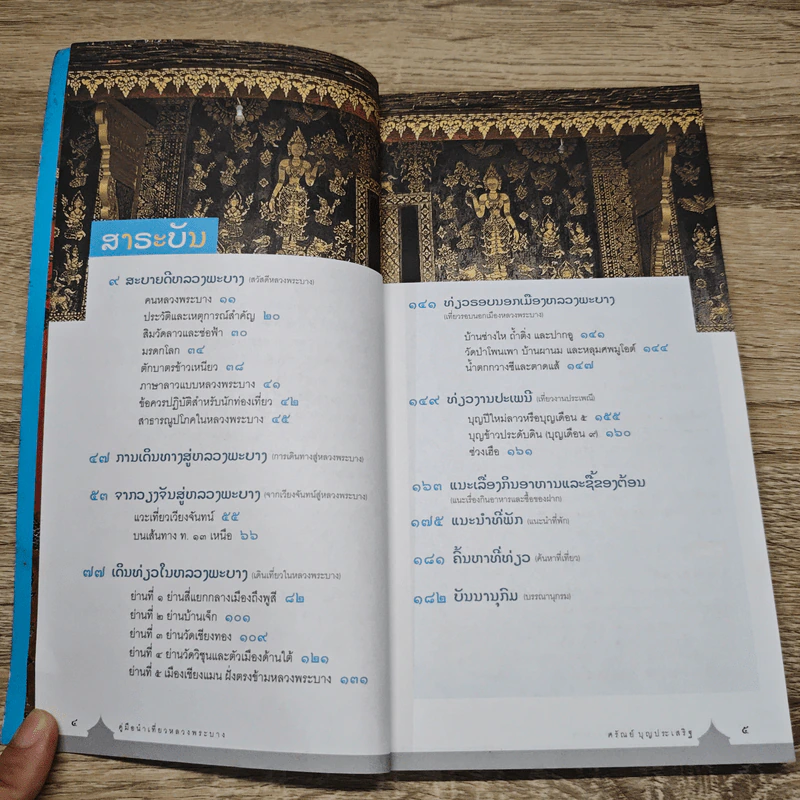 ສາຣະບັນ
๙ ສະບາຍດີຫລວງພະບາງ (สวัสดีหลวงพระบาง)
คนหลวงพระบาง ๑๑
ประวัติและเหตุการณ์สำคัญ ๒๐
สิมวัดลาวและช่อฟ้า ๓๐
มรดกโลก ๓๔
ตักบาตรข้าวเหนียว ๓๘
ภาษาลาวแบบหลวงพระบาง ๔๑
ข้อควรปฏิบัติสำหรับนักท่องเที่ยว ๔๒
สาธารณูปโภคในหลวงพระบาง ๔๕
๔๗ ການເດີນທາງສູ່ຫລວງພະບາງ (การเดินทางสู่หลวงพระบาง)
๕๓ ຈາກວຽງຈັນສູ່ຫລວງພະບາງ (จากเวียงจันทน์สู่หลวงพระบาง)
แวะเที่ยวเวียงจันทน์ ๕๕
บนเส้นทาง ท. ๑๓ เหนือ ๖๖
๗๗ ເດີນທ່ຽວໃນຫລວງພະບາງ (เดินเที่ยวในหลวงพระบาง)
ย่านที่ ๑ ย่านสี่แยกกลางเมืองถึงพูสี ๘๒
ย่านที่ ๒ ย่านบ้านเจ็ก ๑๐๑
ย่านที่ ๓ ย่านวัดเชียงทอง ๑๐๙
ย่านที่ ๔ ย่านวัดวิชุนและตัวเมืองด้านใต้ ๑๒๑
ย่านที่ ๕ เมืองเชียงแมน ฝั่งตรงข้ามหลวงพระบาง ๑๓๑
๔ คู่มือนำเที่ยวหลวงพระบาง
๑๔๑ ທ່ຽວຮອບນອກເມືອງຫລວງພະບາງ
(เที่ยวรอบนอกเมืองหลวงพระบาง)
บ้านช่างไห ถ้ำติ่ง และปากอู ๑๔๑
วัดป่าโพนเพา บ้านผานม และหลุมศพมูโอต์ ๑๔๔
น้ำตกกวางซีและตาดแส้ ๑๔๗
๑๔๙ ທ່ຽວງານປະເພນີ (เที่ยวงานประเพณี)
บุญปีใหม่ลาวหรือบุญเดือน ๕ ๑๕๕
บุญข้าวประดับดิน (บุญเดือน ๙) ๑๖๐
ช่วงเฮือ ๑๖๑
๑๖๓ ແນະເລື່ອງກິນອາຫານແລະຊື້ຂອງຕ້ອນ
(แนะเรื่องกินอาหารและซื้อของฝาก)
๑๗๕ ແນະນຳທີ່ພັກ (แนะนำที่พัก)
๑๘๑ ຄົ້ນຫາທີ່ທ່ຽວ (ค้นหาที่เที่ยว)
๑๘๒ ບັນນານຸກົມ (บรรณานุกรม)
ศรัณย์ บุญประเสริฐ ๕